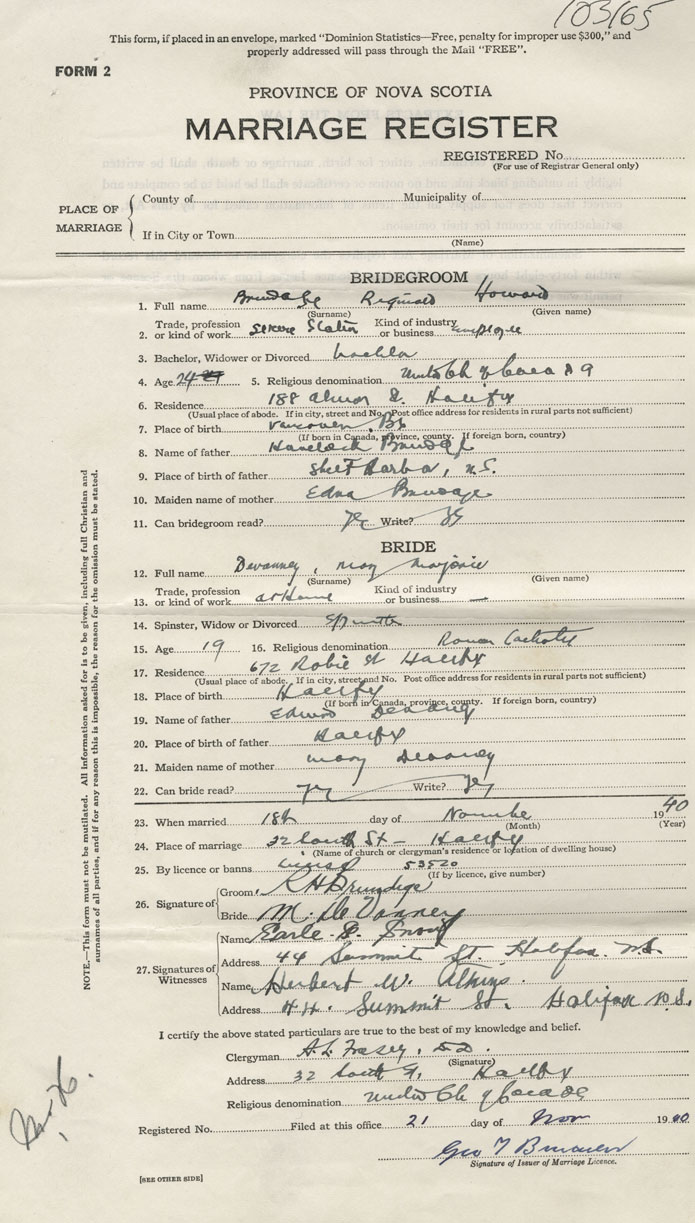 103165
This form, if placed in an envelope, marked "Dominion Statistics—Free, penalty for improper use $300," and
properly addressed will pass through the Mail "FREE".
FORM 2
PROVINCE OF NOVA SCOTIA
MARRIAGE REGISTER
REGISTERED No.
(For use of Registrar General only)
PLACE OF MARRIAGE
County of Municipality of
If in City or Town
(Name)
BRIDEGROOM
1. Full name Brundage Reginald Howard
(Surname) (Given name)
2. Trade, profession or kind of work Service Station Kind of industry or business employee
3. Bachelor, Widower or Divorced
4. Age 24 5. Religious denomination United Ch of Canada
6. Residence 188 St. Halifax
(Usual place of abode. If in city, street and No. Post office address for residents in rural parts not sufficient)
7. Place of birth Vancouver, BC
(If born in Canada, province, county. If foreign born, country)
8. Name of father Havelock Brundage
9. Place of birth of father Sheet Harbor, N.S.
10. Maiden name of mother Edna Brundage
11. Can bridegroom read? yes Write? yes
BRIDE
12. Full name Devanney, May Marjorie
(Surname) (Given name)
13. Trade, profession or kind of work at Home Kind of industry or business —
14. Spinster, Widow or Divorced Spinster
15. Age 19 16. Religious denomination Roman Catholic
17. Residence 672 Robie St Halifax
(Usual place of abode. If in city, street and No. Post office address for residents in rural parts not sufficient)
18. Place of birth Halifax
(If born in Canada, province, county. If foreign born, country)
19. Name of father Edward Devanney
20. Place of birth of father Halifax
21. Maiden name of mother Mary Devanney
22. Can bride read? yes Write? yes
23. When married 18th day of November 1940
(Month) (Year)
24. Place of marriage 32 South St - Halifax
(Name of church or clergyman's residence or location of dwelling house)
25. By licence or banns license 53520
(If by licence, give number)
26. Signature of
Groom R H Brundige
Bride M. De Vanney
27. Signatures of Witnesses
Name Earle B. Snow
Address 44 Summit St. Halifax. N.S.
Name Herbert W. Atkins.
Address 44. Summit St. Halifax N.S.
I certify the above stated particulars are true to the best of my knowledge and belief.
Clergyman A.L. Fraser, D.D.
(Signature)
Address 32 South St, Halifax
Religious denomination United Ch of Canada
Registered No. Filed at this office 21 day of Nov 1940
Geo
Signature of Issuer of Marriage Licence.
[SEE OTHER SIDE]
NOTE.—This form must not be mutilated. All information asked for is to be given, including full Christian and
surnames of all parties, and if for any reason this is impossible, the reason for the omission must be stated.